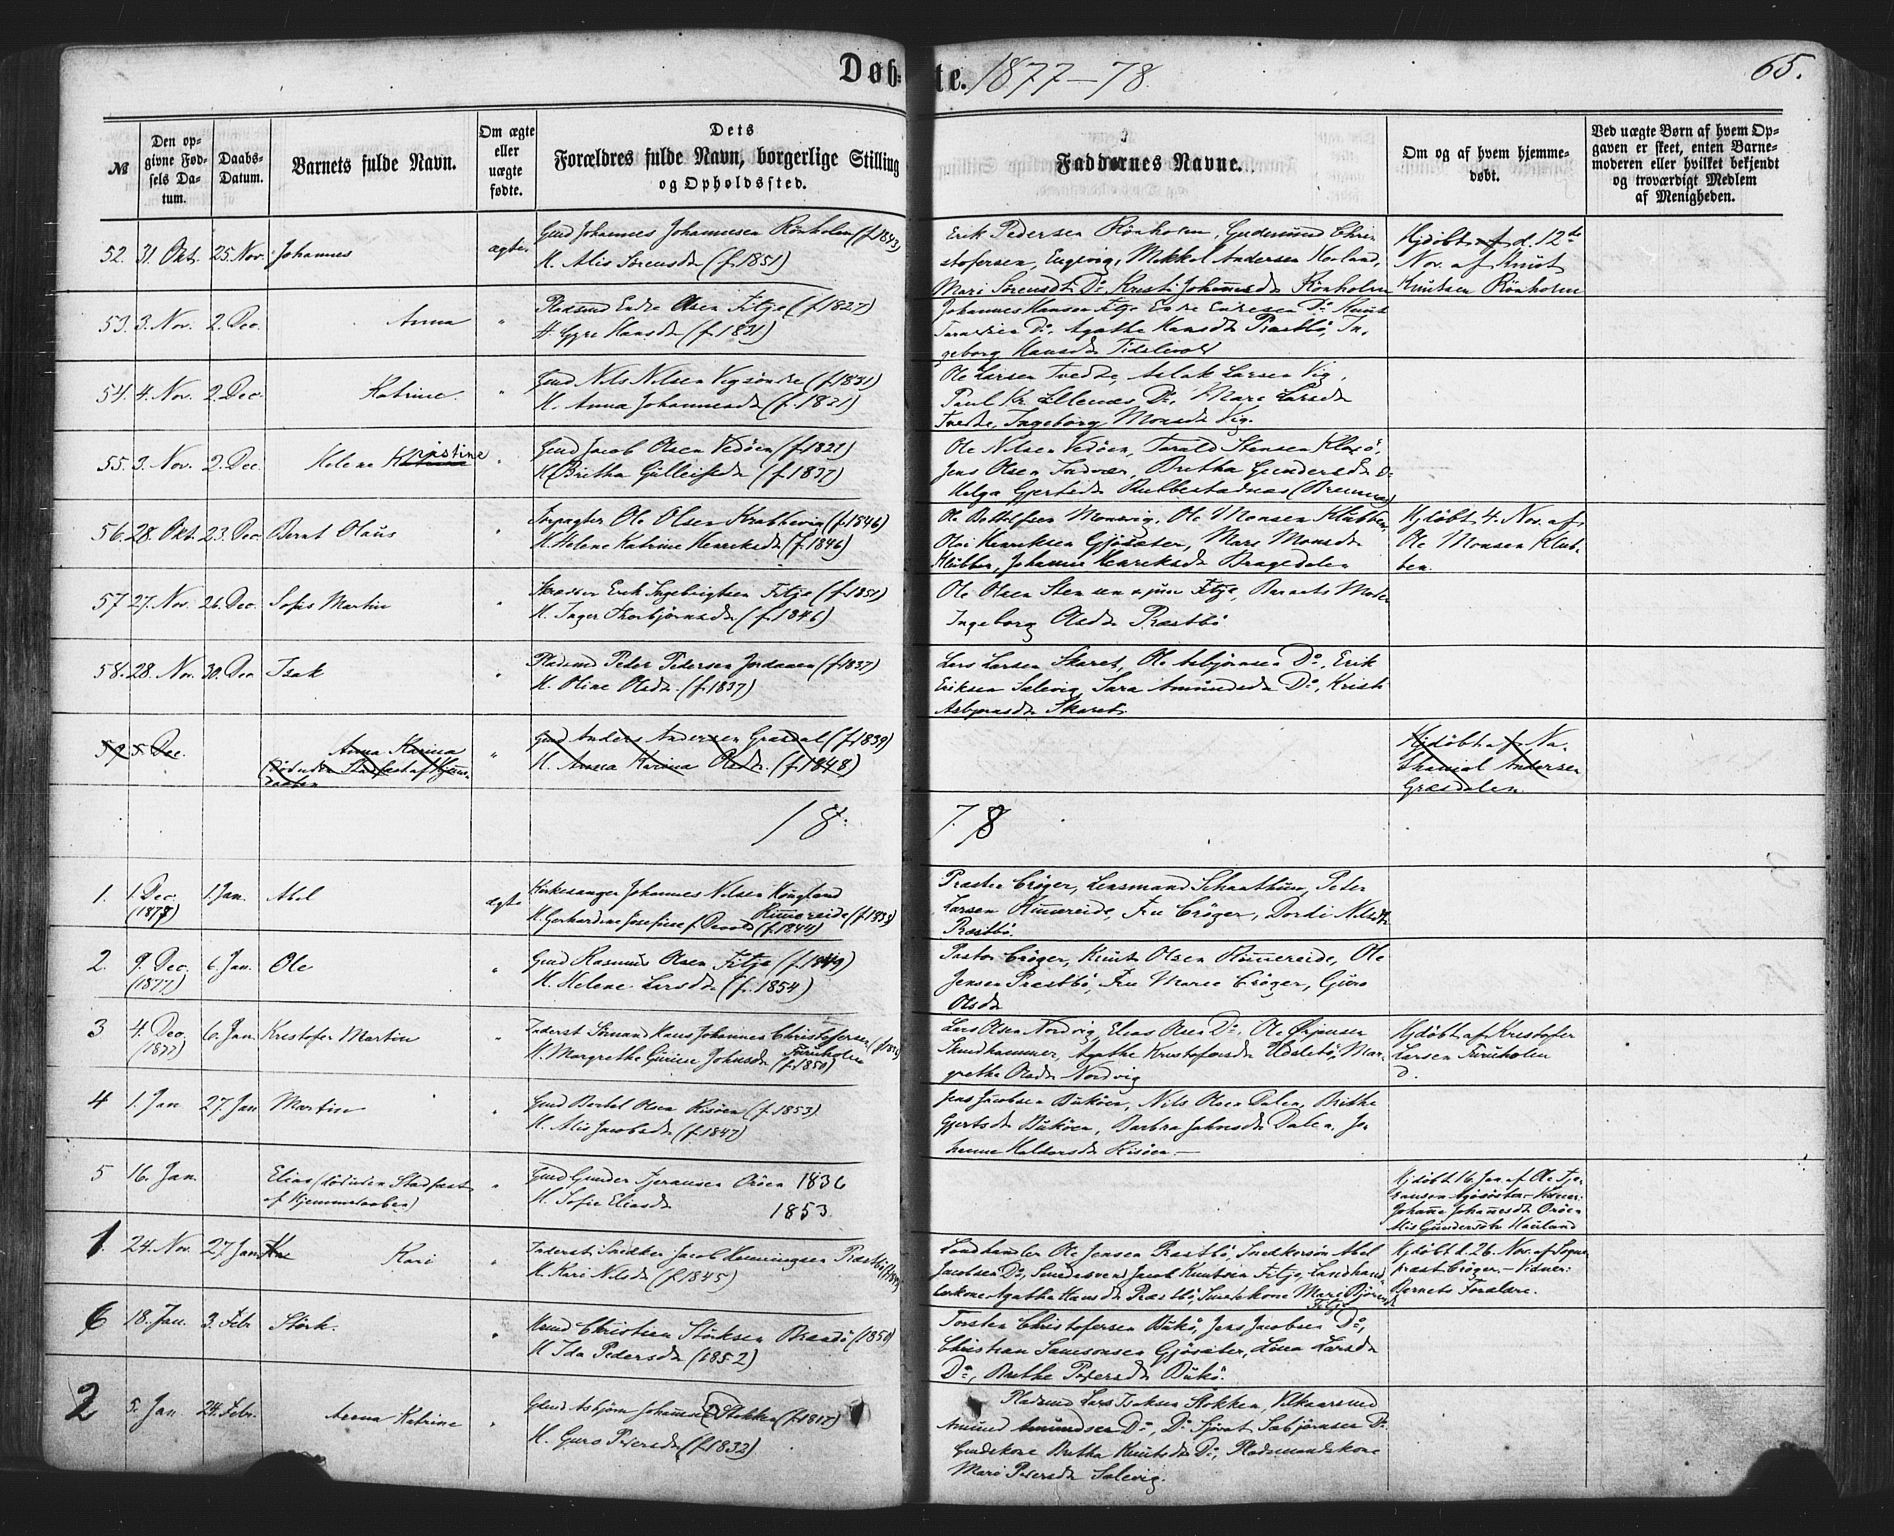 Døb=te. 1877-78.
65.
№
Den op-
givne Fød-
sels Da-
tum.
Daabs-
Datum.
Barnets fulde Navn.
Om ægte
eller
uægte
fødte.
Dets
Forældres fulde Navn, borgerlige Stilling
og Opholdssted.
Faddernes Navne.
Om og af hvem hjemme-
døbt.
Ved uægte Børn af hvem Op-
gaven er skeet, enten Barne-
moderen eller hvilket bekjendt
og troværdigt Medlem
af Menigheden.
52. 31. Okt. 25. Nov. Johannes ægte
Gmd Johannes Johannesen Rönholm (f. 1843)
H. Alis Sörensdr (f. 1851)
Erik Pedersen Rönholm, Gudmund Chri
stofersen, Engevig, Mikkel Andersen
Mari Sörensdr Do, Kristi Johansdr Rönholm
Hjdøbt d. 12te
Nov. af Knut
Knutsen Rönholm
53. 3. Nov. 2. Dec. Anna "
Pladsmd Endre Olsen Fitje (f. 1827)
H. Gyri Hansdr (f. 1831)
Johannes Hansen Fitje Endre Endresen Do Knut
Do, Agathe Hansdr Præstbö, In-
geborg Hansdr
54. 4. Nov. 2. Dec. Katrine "
Gmd Nils Nilsen Vig (f. 1831)
H. Anna Johannesdr (f. 1831)
Ole Larsen Tvedte, Aslak Larsen Vig,
Paul Kr. Ellends Do, Mari Larsdr
Tvedte, Ingeborg Monsdr Vig.
55. 3. Nov. 2. Dec. Helene Kristine "
Gmd Jacob Olsen Vedöen (f. 1821)
H. Britha Gulleiksdr (f. 1837)
Ole Nilsen Vedöen, Tarald Stensen
Jens Olsen Indvær, Britha Gundersdr Do
Helga Gjertsdr Rubbestadnæs (Bremnæs)
56. 28. Okt. 23. Dec. Bernt Olaus "
Ole Olsen Krabbevig (f. 1846)
H. Helene Katrine Henriksdr (f. 1846)
Ole Monsen Klubben,
Olai Henriksen Gjösæter, Mari Monsdr
Klubben, Johanna Henriksdr Dragedalen
Hjdøbt 4. Nov. af
Ole Monsen Klub-
ben.
57 27. Nov. 26. Dec. Sofus Martin "
Skrædder Erik Ingebrigtsen Fitje (f. 1851)
H. Inger Thorbjørnsdr (f. 1846)
Ole Olsen Sten sen & jun Fitje, Barnets Moder
Ingeborg Olsdr Præstbö
58. 28. Nov. 30. Dec Isak "
Pladsmd Peder Pedersen Jordaaen (f. 1837)
H. Oline Olsdr. (f. 1837)
Lars Larsen Skaret, Ole Asbjörnsen Do, Erik
Eriksen Salevig, Sara Amundsdr Do, Kristi
Asbjørnsdr Skaret.
59 5 Dec. Anna Karina "
(Død uden Stadfæst. af Hjem-
daaben
Gmd Anders Andersen Græsdal (f. 1839)
H. Anna Karina Olsdr. (f. 1848)
Hjdøbt af Na-
thanial Andersen
Græsdalen.
18 78
1. 1. Dec. (1877) 1. Jan. Abel ægte
Kirkesanger Johannes Nilsen Kongland
Rimmereide (f. 1838)
H. Gerhardine Josefine f. Devold (f. 1844)
Præsten Cröger, Lensmand Schanthun, Peter
Larsen Rimmereide, Fru Cröger, Dordi Nilsdr
Præstbö.
2. 9. Dec. (1877) 6. Jan. Ole "
Gmd Rasmus Olsen Fitje (f. 1849)
H. Helene Larsdr (f. 1854)
Pastor Cröger, Knut Olsen Rimmereide, Ole
Jensen Præstbö, Fru Marie Cröger, Guro
Olsdr
3 4. Dec. (1877) 6. Jan Kristofer Martin "
Inderst Sömand Hans Johannes Christofersen
Furuholm
H. Margrethe Johnsdr (f. 1850)
Lars Olsen Nordvig, Elias Olsen Do, Ole Örjansen
Skumhammer, Agathe Kristofersdr Udsletbö, Mar-
grethe Olsdr Nordvig
Hjdøbt af Kristofer
Larsen Furuholm
4 1. Jan 27. Jan Martin "
Gmd Bertel Olsen Risöen (f. 1853)
H. Alis Jacobsdr (f. 1847)
Jens Jacobsen Buköen, Nils Olsen Dalen, Brithe
Gjertsdr Buköen, Barbra Johnsdr Dalen, Jo
hanne Haldorsdr Risöen.—
5 16. Jan. Elias (död uden Stadfæst
af Hjemmedaaben) "
Gmd Gunder Tjeransen Oröen 1836
H. Sofie Eliasdr 1853
Hjdøbt 16. Jan af Ole Tje-
ransen Agösöster. Vidner:
Johanne Johannesdr Oröen
Alis Gundersdr Hauland
1. 24. Nov. 27. Jan Kari "
Inderst Snedker Jacob Henningsen Præstbö
H. Kari Nilsdr (f. 1845)
Landhandler Ole Jensen Præstbö, Snedkersön Abel
Jacobsen Do, Smedesvend Jacob Knutsen Fitje, Landhand
lerkone Agathe Hansdr Præstbö, Smedekone Mari Björnsdr
Fitje
Hjdøbt d. 26. Nov. af Sogne-
præst Cröger.— Vidner:
Barnets Forældre.
6 18. Jan. 3. Febr. Störk. "
Gmd Christian Störksen Brandö (1850)
H. Ida Pedersdr (1852)
Torsten Christofersen Bukö, Jens Jacobsen Do,
Christian Samsonsen Gjösæter, Lina Larsdr
Do, Brethe Pedersdr Bukö.
2 5. Jan. 24. Febr. Anna Katrine "
Gmd Asbjørn Johannes Stokken (f. 1817)
H. Guro Pedersdr (f. 1833)
Pladsmd Lars Isaksen Stokken, Vilkaarsmd
Amund Amundsen Do, Do Sjovat Asbjörnsen Do
Gmdskone Britha Knutsdr Do, Pladsmandskone
Mari Pedersdr Salevig.